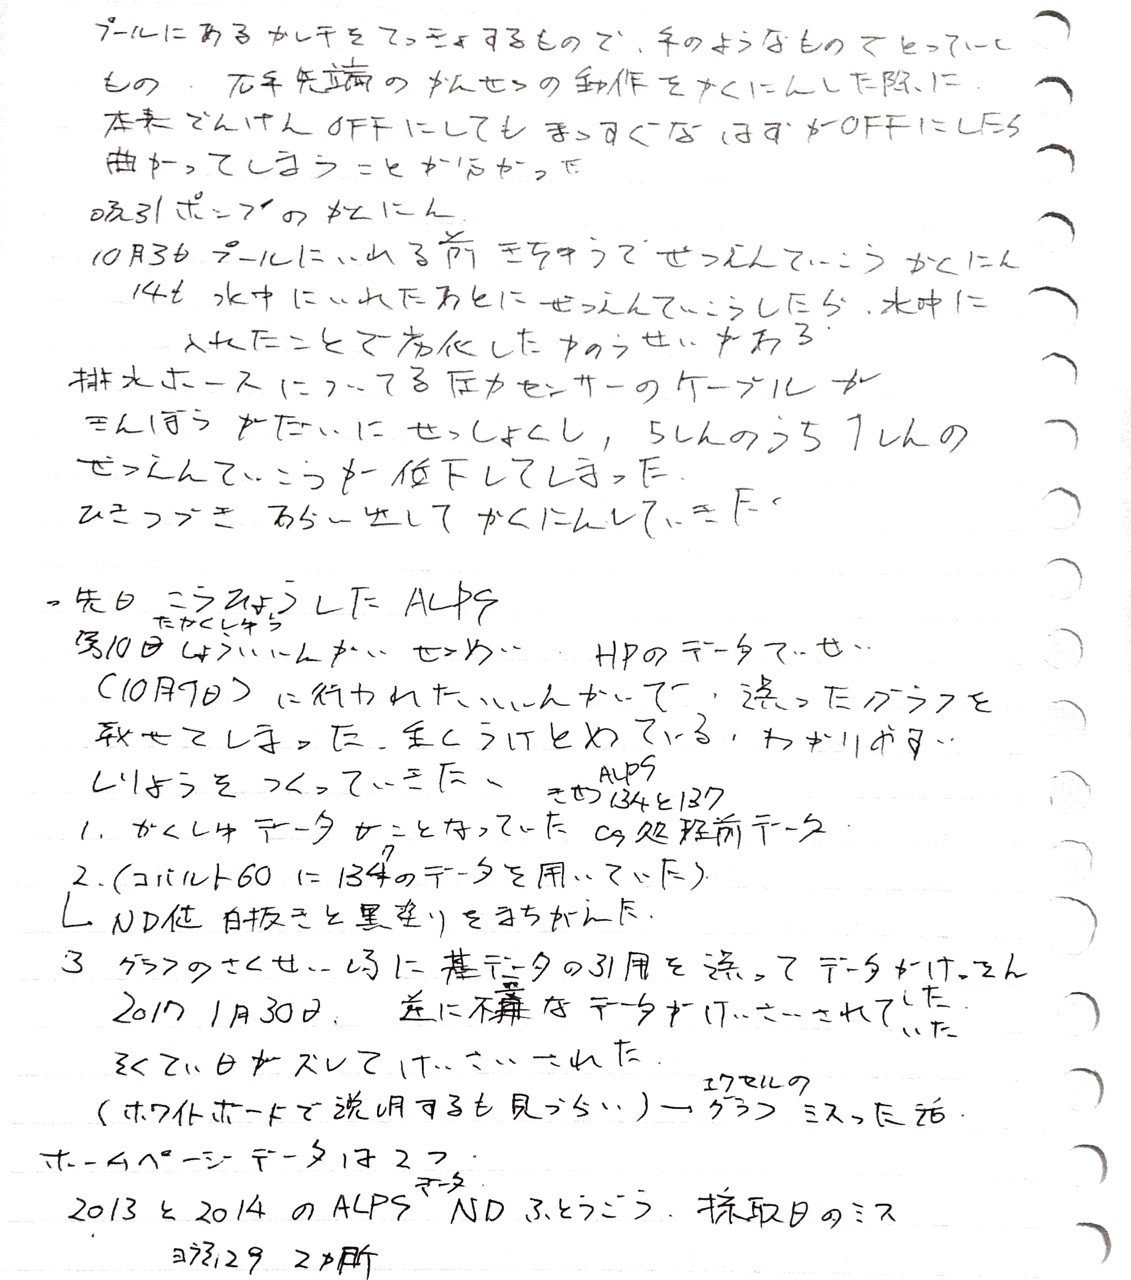 プールにあるかレキをてっきょするもので、手のようなものでとっていく
もの、右手先端のかんせつの動作をかくにんした際に
本来でんげんOFFにしてもまっすぐなはずがOFFにしたら
曲がってしまうことが分かった
吸引ポンプのかくにん
10月3日 プールにいれる前 きちゅうでぜつえんていこうかくにん
14日 水中にいれたあとにぜつえんていこうしたら、水中に
入れたことで劣化したかのうせいがある
排水ホースについてる圧力センサーのケーブルが
きんぼうがだいにせっしょくし,5しんのうち1しんの
ぜつえんていこうが低下してしまった
ひきつづきあらい出してかくにんしていきたい
・先日こうひょうしたALPS
たかくしゅう
第10回しょういいんかいせつめい HPのデータていせい
(10月9日)に行われたいいんかいで、誤ったグラフを
載せてしまった、重くうけとめている、わかりやすい
しりょうをつくっていきたい
ALPS
きせつ134と137
1. かくしゅデータがことなっていた Cs処理前データ
2.(コバルト60に137のデータを用いていた)
ND値 白抜きと黒塗りをまちがえた.
3 グラフのさくせい時に基データの引用を誤ってデータがけっそん
した
2017 1月30日、逆に不要なデータがけいさいされていた
そくてい日がズレてけいさいされた.
エクセルの
(ホワイトボードで説明するも見づらい)→グラフミスった話.
ホームページデータは2つ.
データ
2013と2014のALPS NDふとうごう. 採取日のミス
ヨウ素129 2カ所